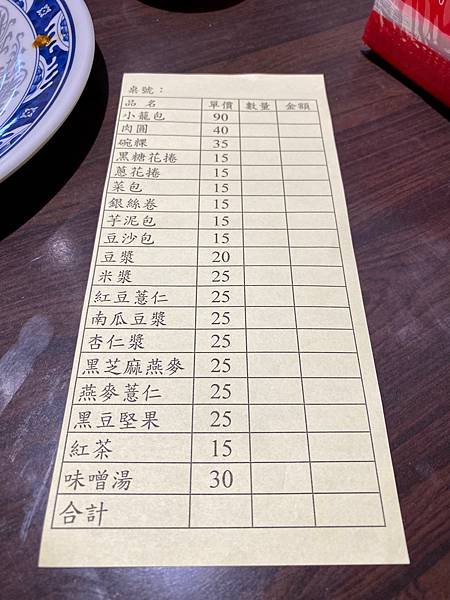 桌號：
品 名 單價 數量 金額
小籠包 90
肉圓 40
碗粿 35
黑糖花捲 15
蔥花捲 15
菜包 15
銀絲卷 15
芋泥包 15
豆沙包 15
豆漿 20
米漿 25
紅豆薏仁 25
南瓜豆漿 25
杏仁漿 25
黑芝麻燕麥 25
燕麥薏仁 25
黑豆堅果 25
紅茶 15
味噌湯 30
合計